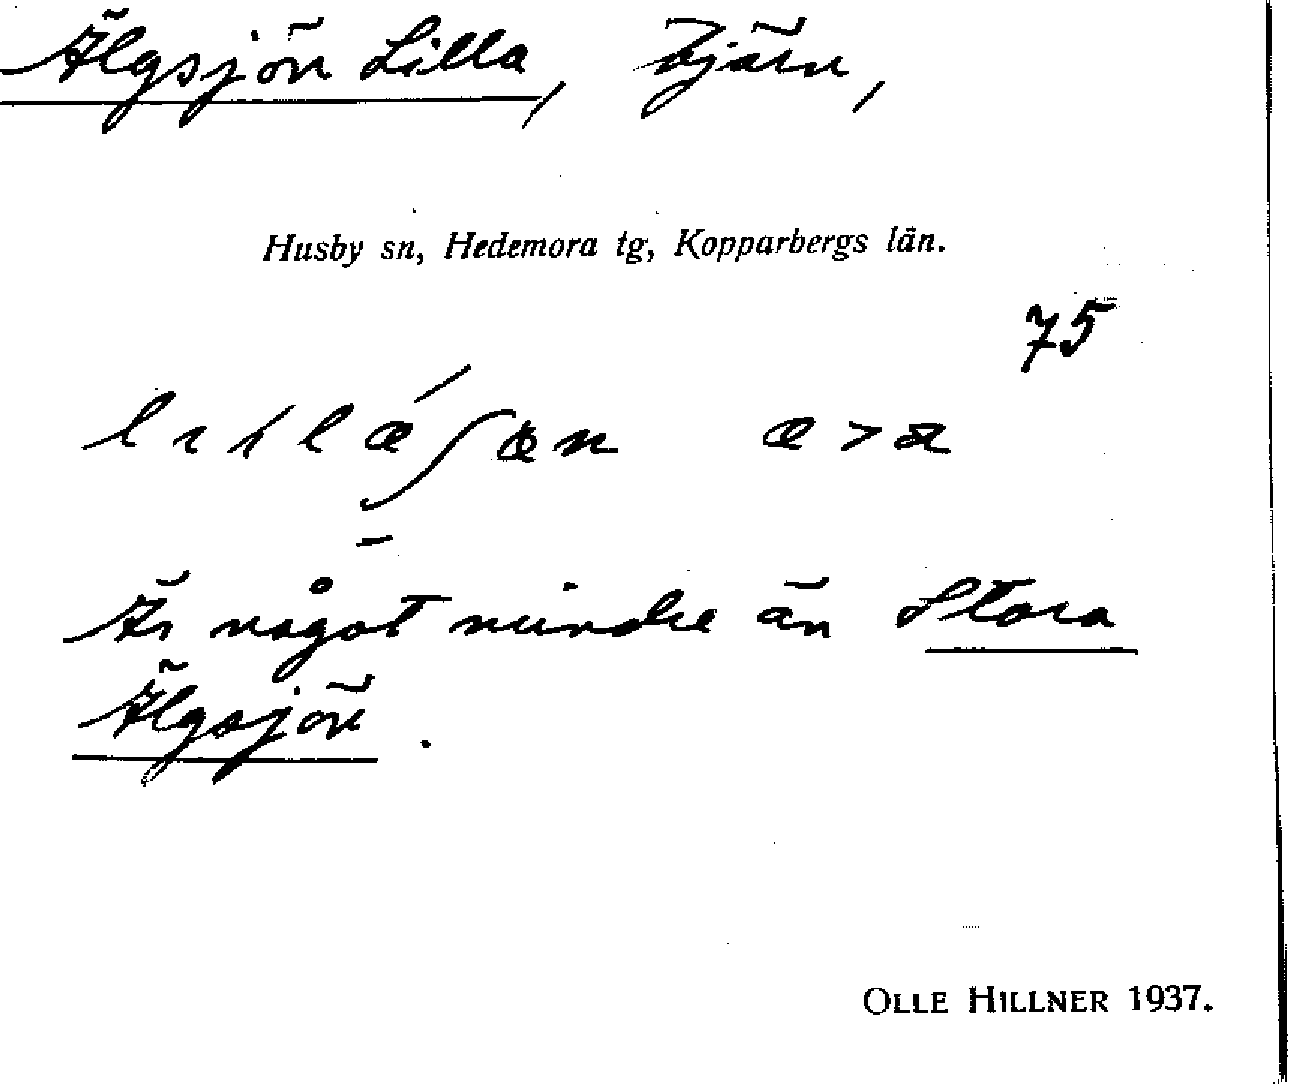 Älgsjön Lilla, Tjärn,
Husby sn, Hedemora tg, Kopparbergs län.
75
Är något mindre än Stora
Älgsjön.
OLLE HILLNER 1937.